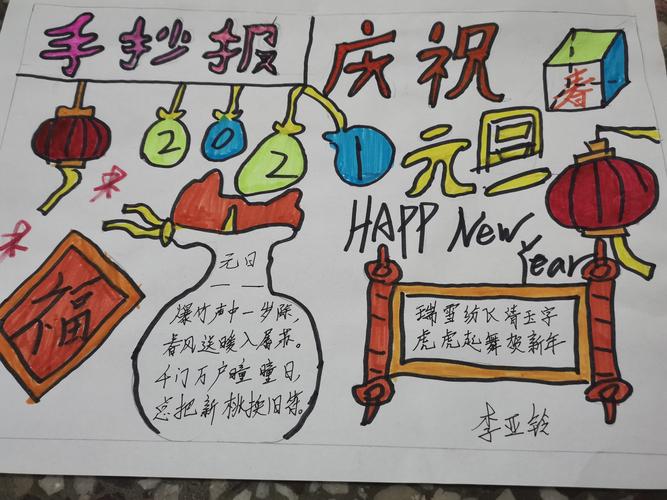 手抄报
庆祝
春
2021
元旦
HAPP New
Year
福
元日
爆竹声中一岁除,
春风送暖入屠苏。
千门万户曈曈日,
总把新桃换旧符。
瑞雪纷飞清玉宇
虎虎起舞贺新年
李亚铃